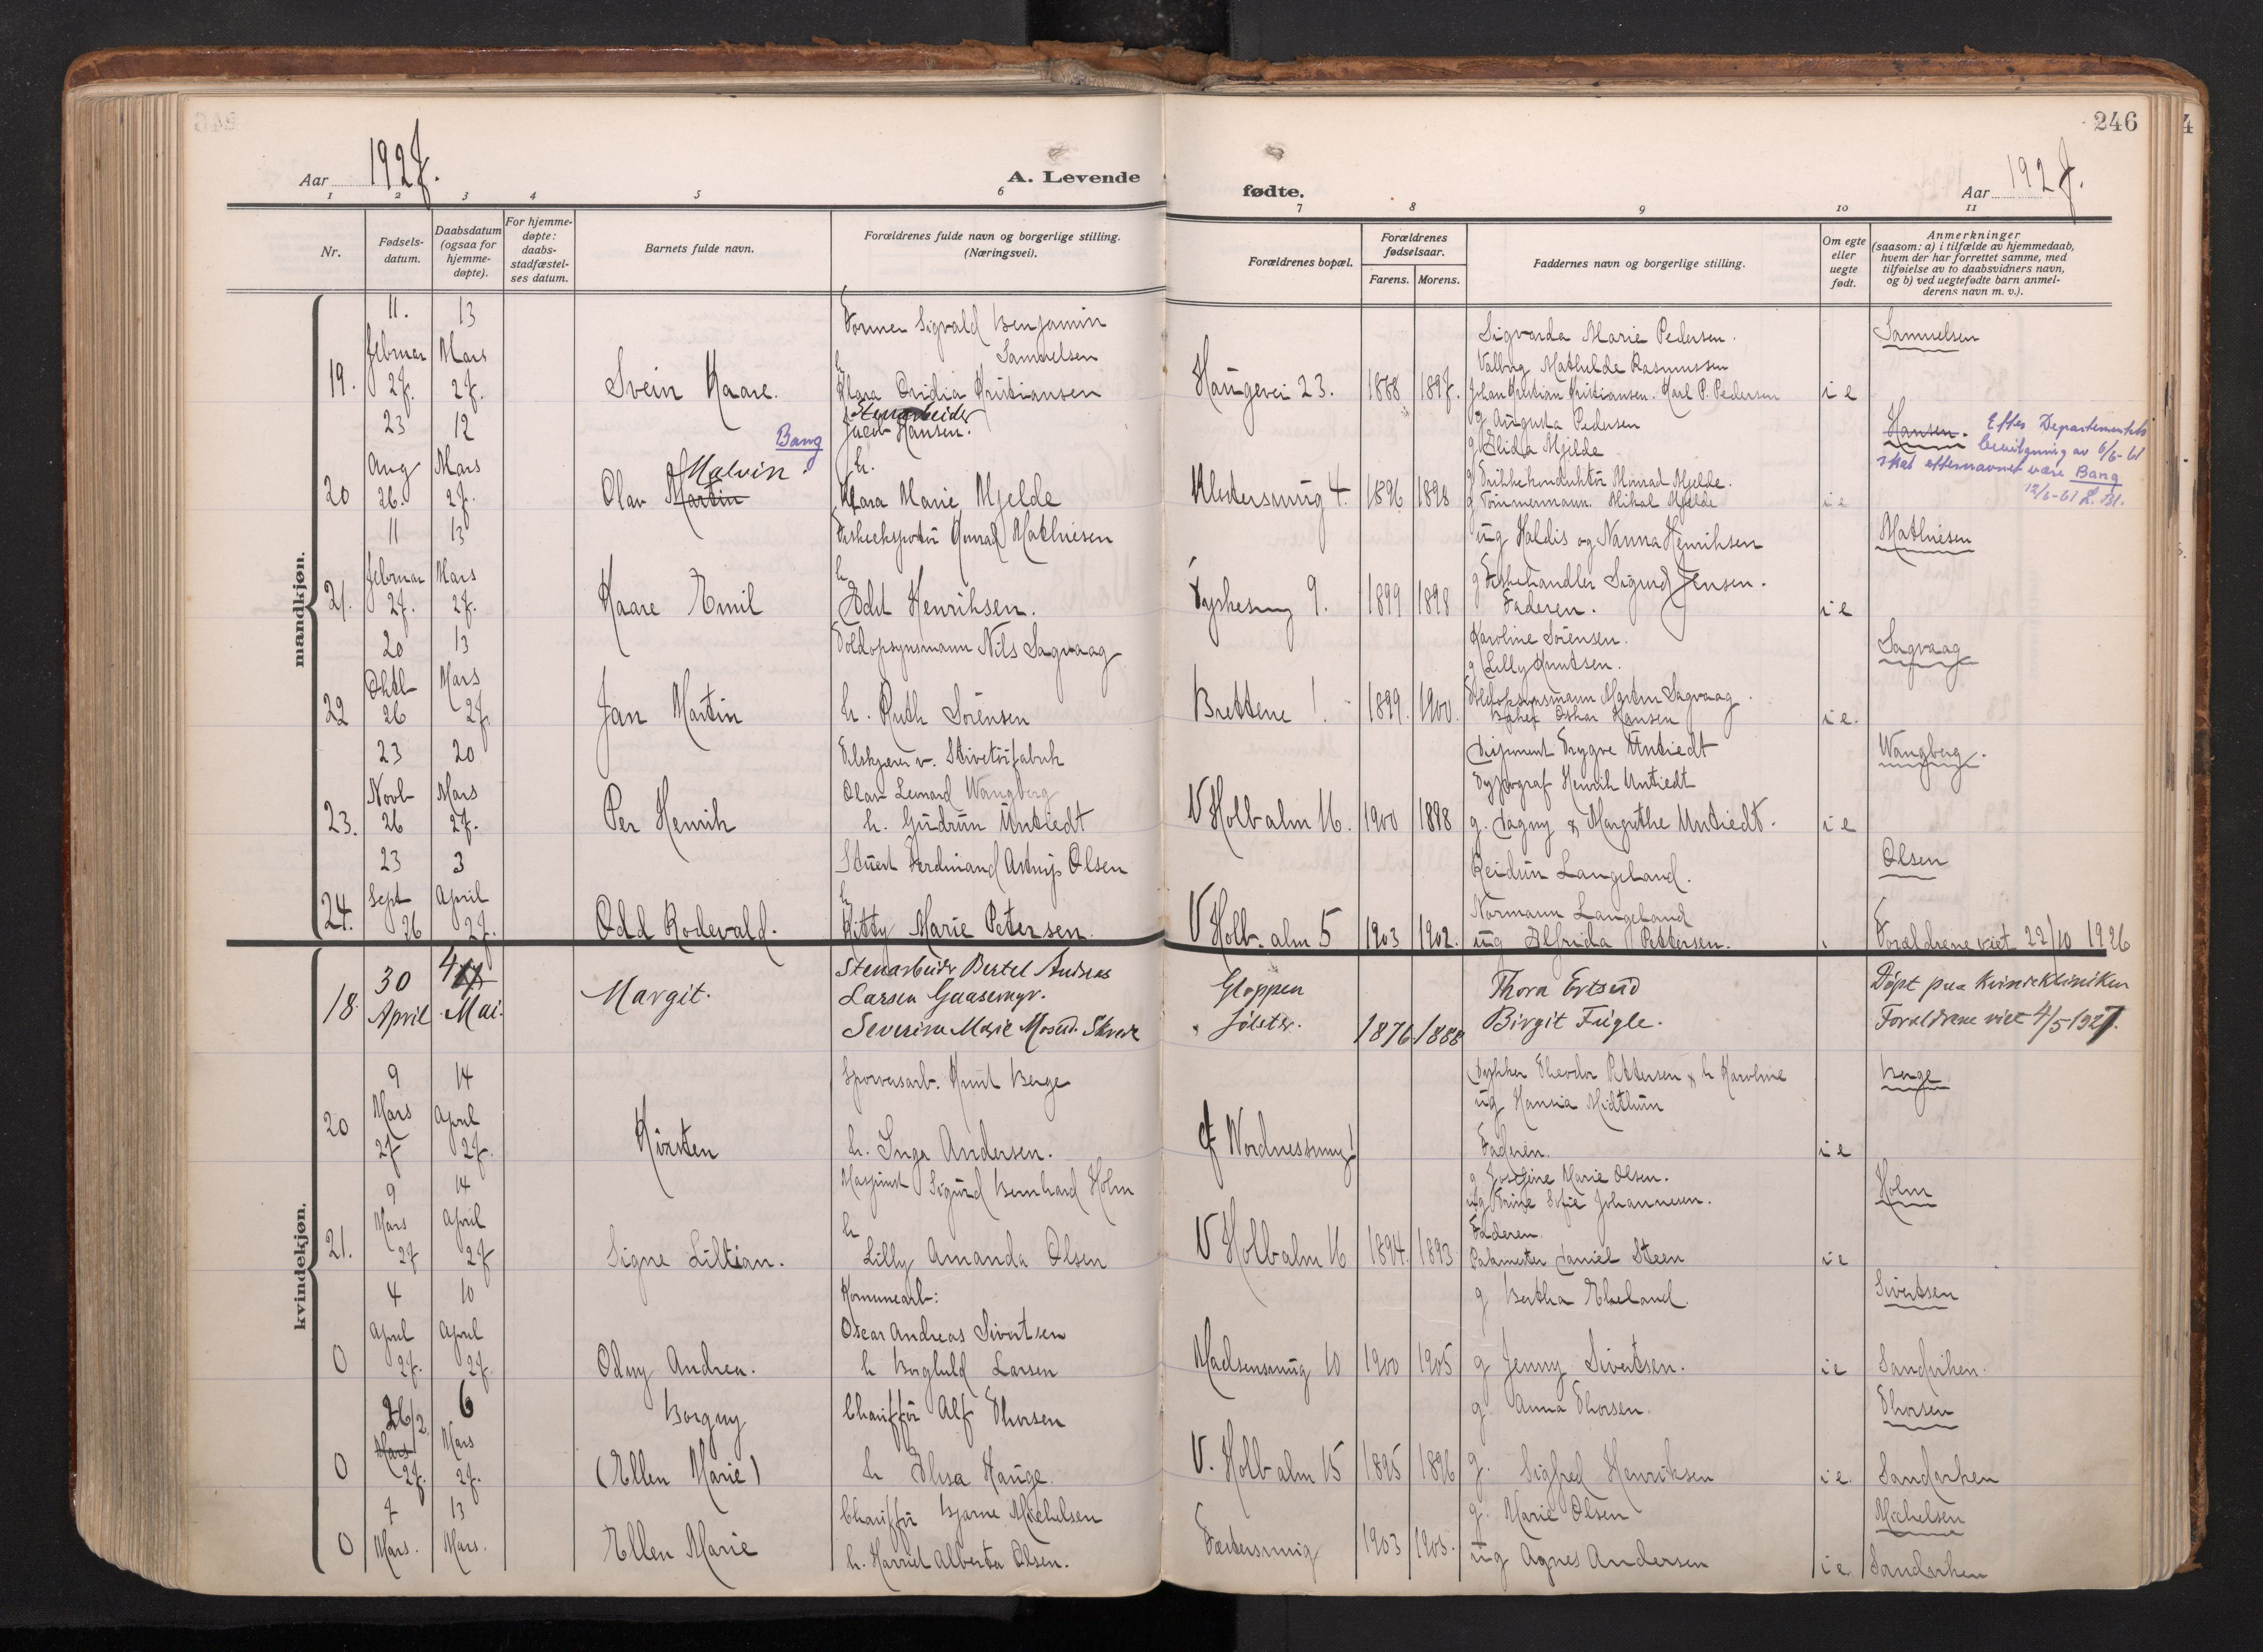 246
Aar 1927.
A. Levende
fødte.
Aar 1927.
1 2 3 4 5 6 7 8 9 10 11
Nr.
Fødsels-
datum.
Daabsdatum
(ogsaa for
hjemme-
døpte).
For hjemme-
døpte:
daabs-
stadfæstel-
ses datum.
Barnets fulde navn.
Forældrenes fulde navn og borgerlige stilling.
(Næringsvei).
Forældrenes bopæl.
Forældrenes
fødselsaar.
Farens. Morens.
Faddernes navn og borgerlige stilling.
Om egte
eller
uegte
født.
Anmerkninger
(saasom: a) i tilfælde av hjemmedaab,
hvem der har forrettet samme, med
tilføielse av to daabsvidners navn,
og b) ved uegtefødte barn anmel-
derens navn m. v.).
mandkjøn.
19.
11.
Februar
27.
13
Mars
27.
Svein Kaare.
Former Sigvald Benjamin
Samuelsen
h
Klara Ovidia Kristiansen
Haugevei 23.
1888
1897.
Sigvarda Marie Pedersen.
Valborg Mathilde Rasmussen
Johan Kristian Kristiansen. Karl P. Pedersen
i e
Samuelsen
20
23
Aug
26.
12
Mars
27.
Bang
Malvin
Olav Martin
Stenarbeider
Jacob Hansen.
h.
Klara Marie Mjelde
Klostersmug 4.
1896
1898
g Augusta Pedersen
g Mjelde
g Trikkekonduktør Konrad Mjelde.
g Tømmermann Mikal Mjelde
i e
Hansen. Efter Departementets
bevilgning av 6/6-61
skal efternavnet være Bang
12/6-61
21.
11
Februar
27.
13
Mars
27.
Kaare Emil
Konrad Mathiesen
h
Edit Henriksen.
Tyskesmug 9.
1899
1898
ug Haldis og Nanna Henriksen
g Fiskehandler Sigurd Jensen.
Faderen.
i e
Mathiesen
22
20
Oktb
26
13
Mars
27.
Jan Martin
Toldopsynsmann Nils Sagvaag
h. Ruth Sørensen
Brettene 1.
1899.
1900.
Karoline Sørensen.
g Lilly Knutsen.
Toldopsynsmann Martin Sagvaag.
Oskar Hansen
i e.
Sagvaag
23.
23
Novb
26
20
Mars
27.
Per Henrik
Tilskjærer v. Skivetøifabrik
Olav Leonard Wangberg
h. Gudrun Untiedt
V Holbalm 16.
1900
1898
Disponent Trygve Untiedt
Typograf Henrik Untiedt
g. Dagny & Margrethe Untiedt.
i e
Wangberg.
24.
23
Sept
26
3
April
27.
Odd Rodevald.
Stuert Ferdinand Olsen
h
Kitty Marie Petersen.
V Holb. alm 5
1903
1902.
Reidun Langeland.
Normann Langeland
ug Alfrida Pettersen.
Olsen
Forældrene viet 22/10 1926
kvindekjøn.
18.
30
April
4
Mai.
Margit.
Stenarbeider Bertel Andreas
Larsen Gaasemyr.
Severine Marie Skrede
Gloppen
Jølster.
1876.
1888
Thora Evtsud
Birgit Fugle.
Døpt paa Kvindeklinikken
Forældrene viet 4/5 1927.
20
9
Mars
27
14
April
27.
Kirsten
Sporveisarb. Knut Berge
h. Inga Andersen.
Nordnessmug 1
Trykker Theodor Pettersen & h Karoline
ug Hansia Midthun
Faderen.
i e
Berge
21.
9
Mars
27
14
April
27
Signe Lillian.
Maskinist Sigurd Bernhard Holm
h
Lilly Amanda Olsen
V Holbalm 16
1894.
1893
g. Josefine Marie Olsen.
ug Trine Sofie Johannesen.
Faderen.
Daniel Steen
i e
Holm
0
4
April
27.
10
April
27.
Odny Andrea.
Komunearb:
Oscar Andreas Sivertsen
h Borghild Larsen
Madsensmug 10
1900
1905
g Bertha Ekeland.
g Jenny Sivertsen.
i e
Sivertsen
Sandviken.
0
26/2
Mars
27.
6
Mars
27.
Borgny
(Ellen Marie)
Chauffør Alf Thorsen
h Elisa Hauge
V. Holb alm 15
1895
1896
g Anna Thorsen.
g. Sigfred Henriksen
i e.
Thorsen
Sandviken
0
7
Mars.
13
Mars.
Ellen Marie
Chauffør Bjarne Michelsen
h. Harriet Alberta Olsen.
1903
1905.
g. Marie Olsen
ug Agnes Andersen
i e
Michelsen
Sandviken